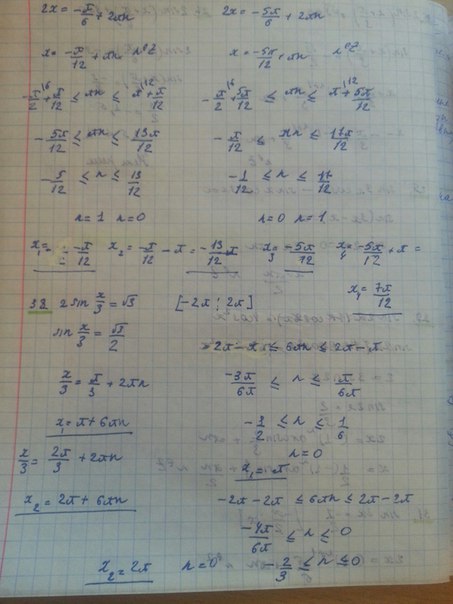 2x = -π/6 + 2πn
2x = -5π/6 + 2πn
x = -π/12 + πn. n∈Z
x = -5π/12 + πn n∈Z
-π/2 + π/12 ≤ πn ≤ π + π/12
-π/2 + 5π/12 ≤ πn ≤ π + 5π/12
-5π/12 ≤ πn ≤ 13π/12
-π/12 ≤ πn ≤ 17π/12
-5/12 ≤ n ≤ 13/12
-1/12 ≤ n ≤ 17/12
n = 1 n = 0
n = 0 n = 1
x₁ = -π/12 x₂ = -π/12 - π = -13/12 π x₃ = -5π/12 x₄ = -5π/12 + π =
x₄ = 7π/12
38. 2 sin x/3 = √3 [-2π; 2π]
sin x/3 = √3/2
-2π - π ≤ 6πn ≤ 2π - π
x/3 = π/3 + 2πn
-3π/6π ≤ n ≤ π/6π
x₁ = π + 6πn
-1/2 ≤ n ≤ 1/6
n = 0
x/3 = 2π/3 + 2πn
x₁ = π
x₂ = 2π + 6πn
-2π - 2π ≤ 6πn ≤ 2π - 2π
-4π/6π ≤ n ≤ 0
x₂ = 2π n = 0 -2/3 ≤ n ≤ 0